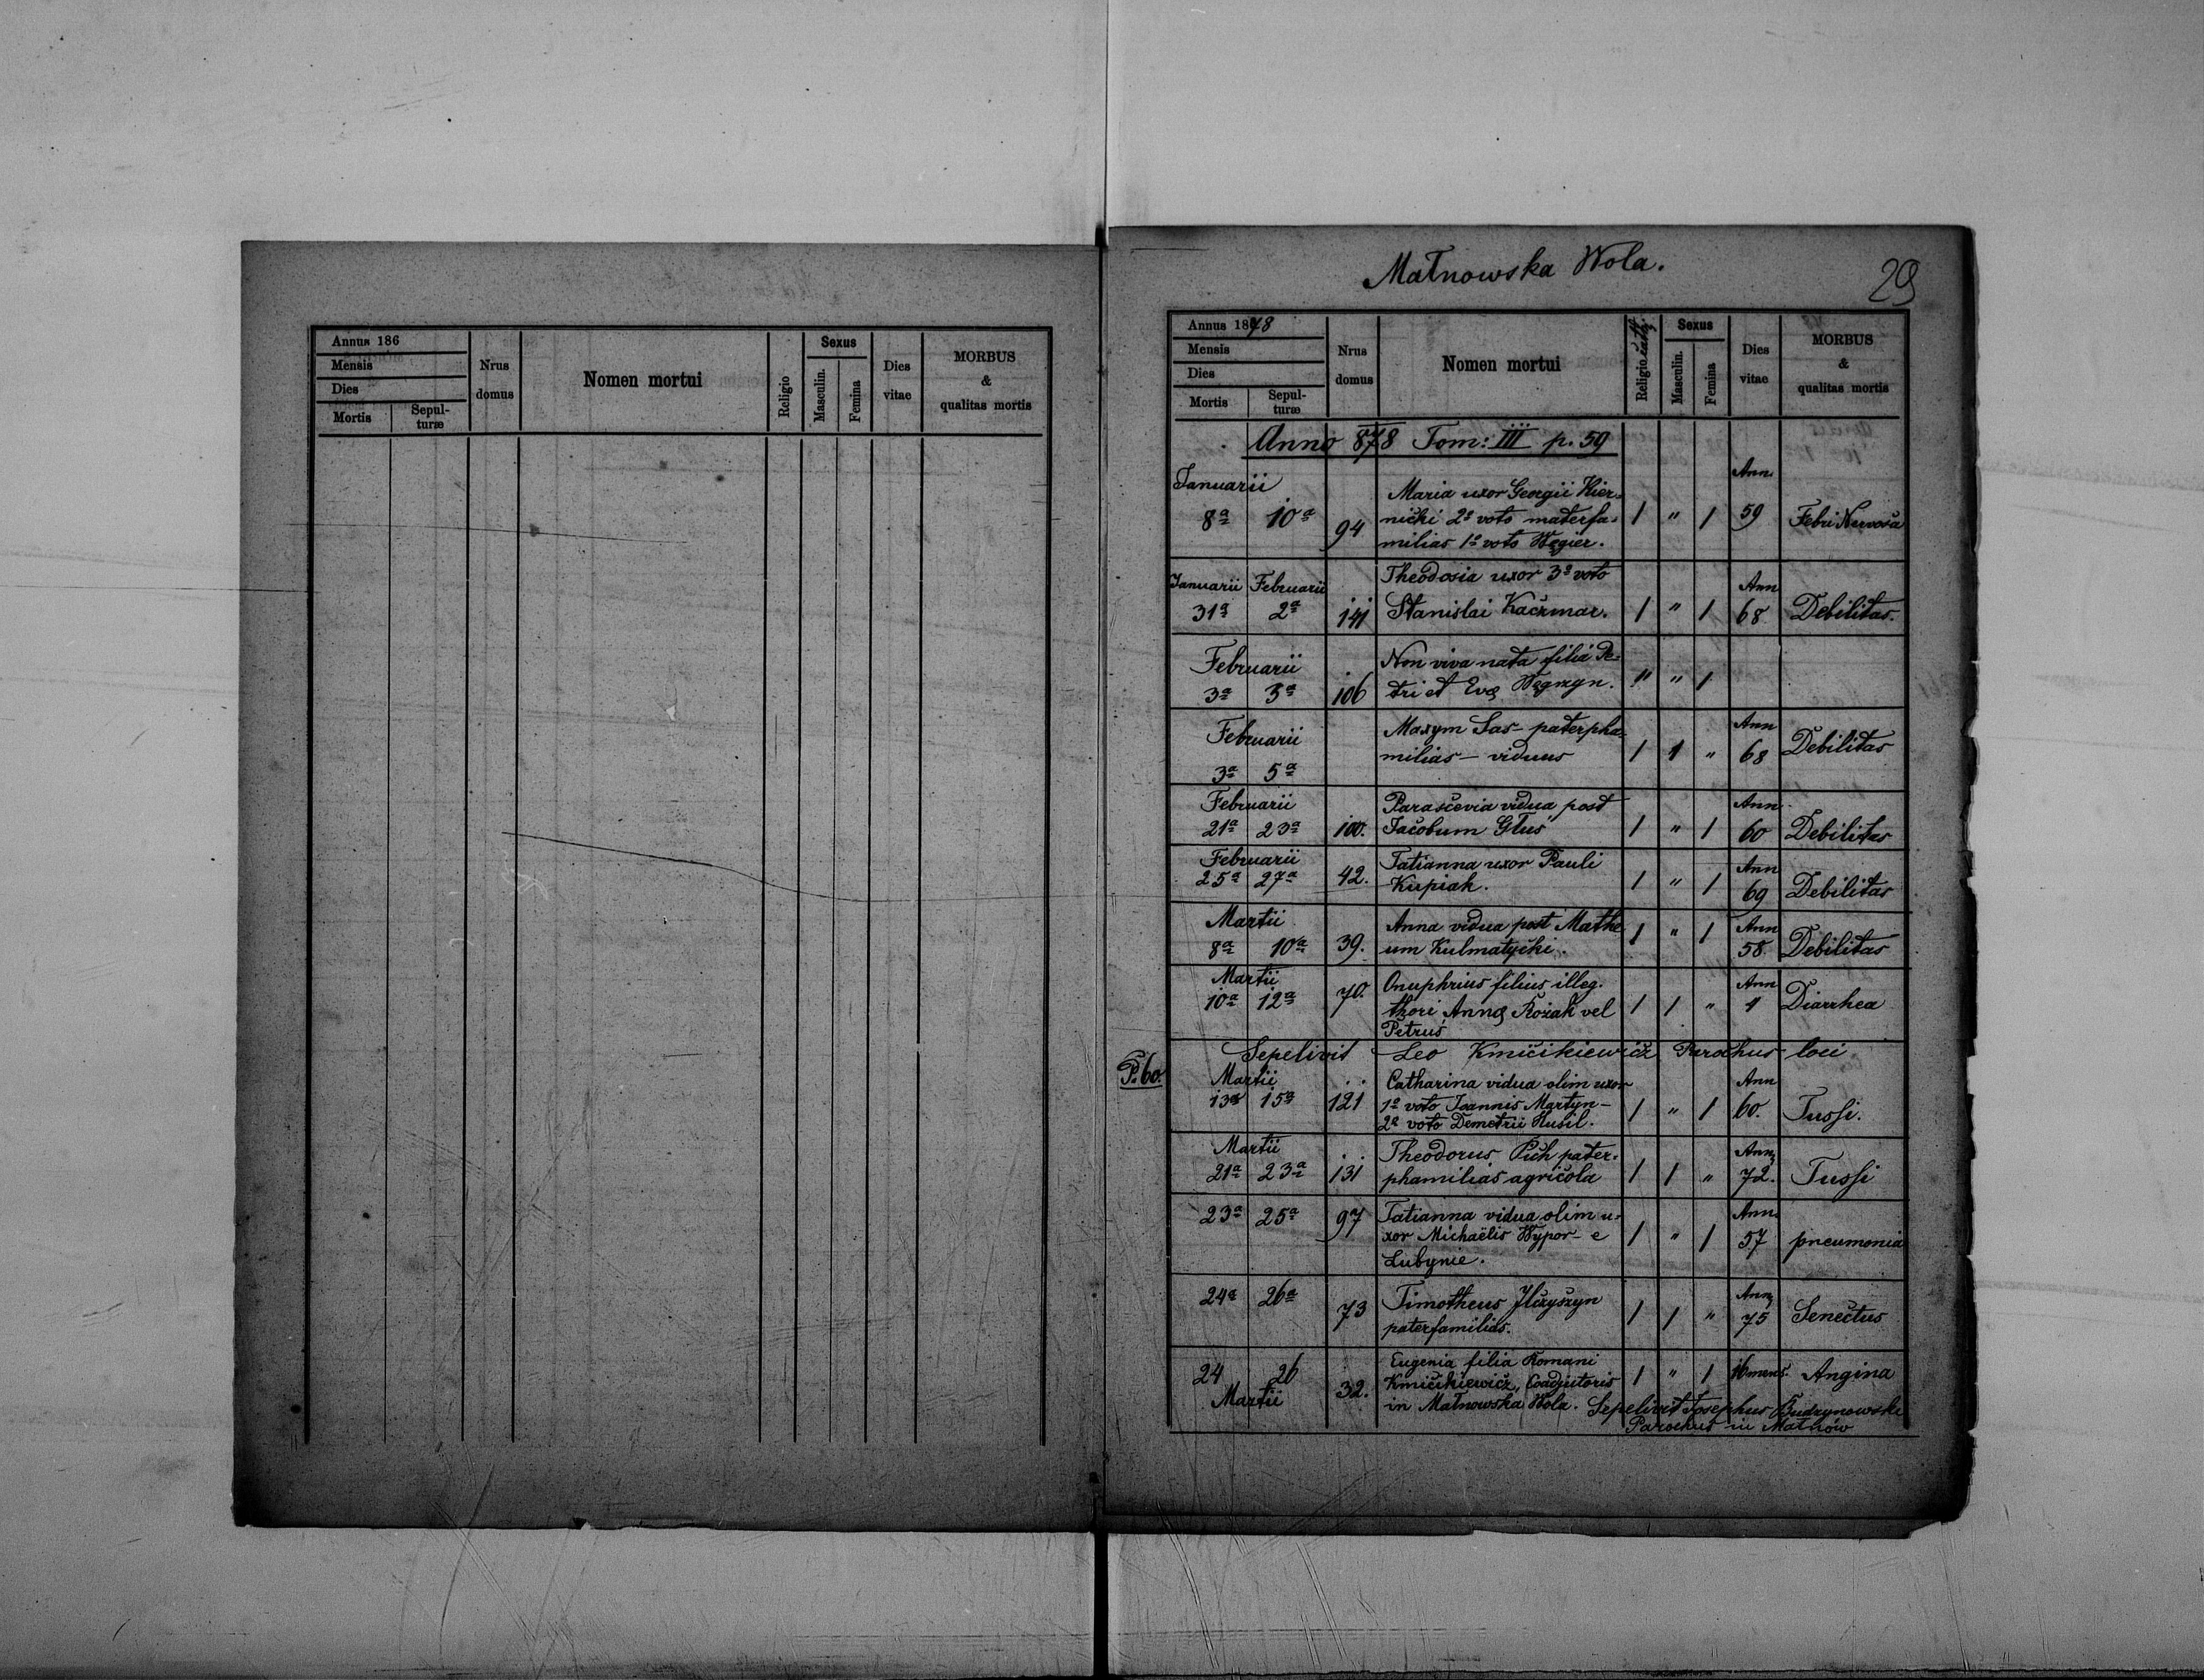 Annus 186
Mensis
Dies
Mortis
Sepul-
turæ
Nrus
domus
Nomen mortui
Religio
Sexus
Masculin.
Femina
Dies
vitae
MORBUS
&
qualitas mortis
Małnowska Wola.
29
Annus 1878
Mensis
Dies
Mortis
Sepul-
turæ
Nrus
domus
Nomen mortui
Religio cath.
Sexus
Masculin.
Femina
Dies
vitae
MORBUS
&
qualitas mortis
Anno 878 Tom: III p. 59
Januarii
8a 10a 94
Maria uxor Georgii Hier-
nicki 2o voto materfa-
milias 1o voto Węgier.
1 " 1 Ann. 59 Febri Nervosa
Januarii Februarii
31a 2a 141
Theodosia uxor 3o voto
Stanislai Kaczmar.
1 " 1 Ann 68 Debilitas.
Februarii
3a 3a 106
Non viva nata filia Pe-
tri et Evę Węgrzyn.
" " 1
Februarii
3a 5a
Maxym Sas - paterpha-
milias - viduus
1 1 " Ann 68 Debilitas
Februarii
21a 23a 100.
Parascevia vidua post
Jacobum Głuś
1 " 1 Ann 60 Debilitas
Februarii
25a 27a 42.
Tatianna uxor Pauli
Kupiak.
1 " 1 Ann 69 Debilitas
Martii
8a 10a 39.
Anna vidua post Mathe
um Kulmatycki.
1 " 1 Ann 58. Debilitas
Martii
10a 12a 70.
Onuphrius filius illeg.
thori Annę Koziak vel
Petruś
1 1 " Ann 4 Diarrhea
Sepelivit Leo Kmicikiewicz Parochus loci
P. 60.
Martii
13a 15a 121
Catharina vidua olim uxor
1o voto Joannis Martyn -
2o voto Demetrii Husil.
1 " 1 Ann 60. Tussi.
Martii
21a 23a 131
Theodorus Puch pater-
phamilias agricola
1 1 " Ann 72. Tussi
23a 25a 97
Tatianna vidua olim u-
xor Michaëlis Wypor - e
Lubynie.
1 " 1 Ann. 57 pneumonia
24a 26a 73
Timotheus Ilczyszyn
paterfamilias.
1 1 " Ann 75 Senectus
24 26 32.
Martii
Eugenia filia Romani
Kmicikiewicz, Coadjutoris
in Małnowska Wola.
1 " 1 16 mens. Angina
Sepelivit Josephus Budzynowski
Parochus in Małnów